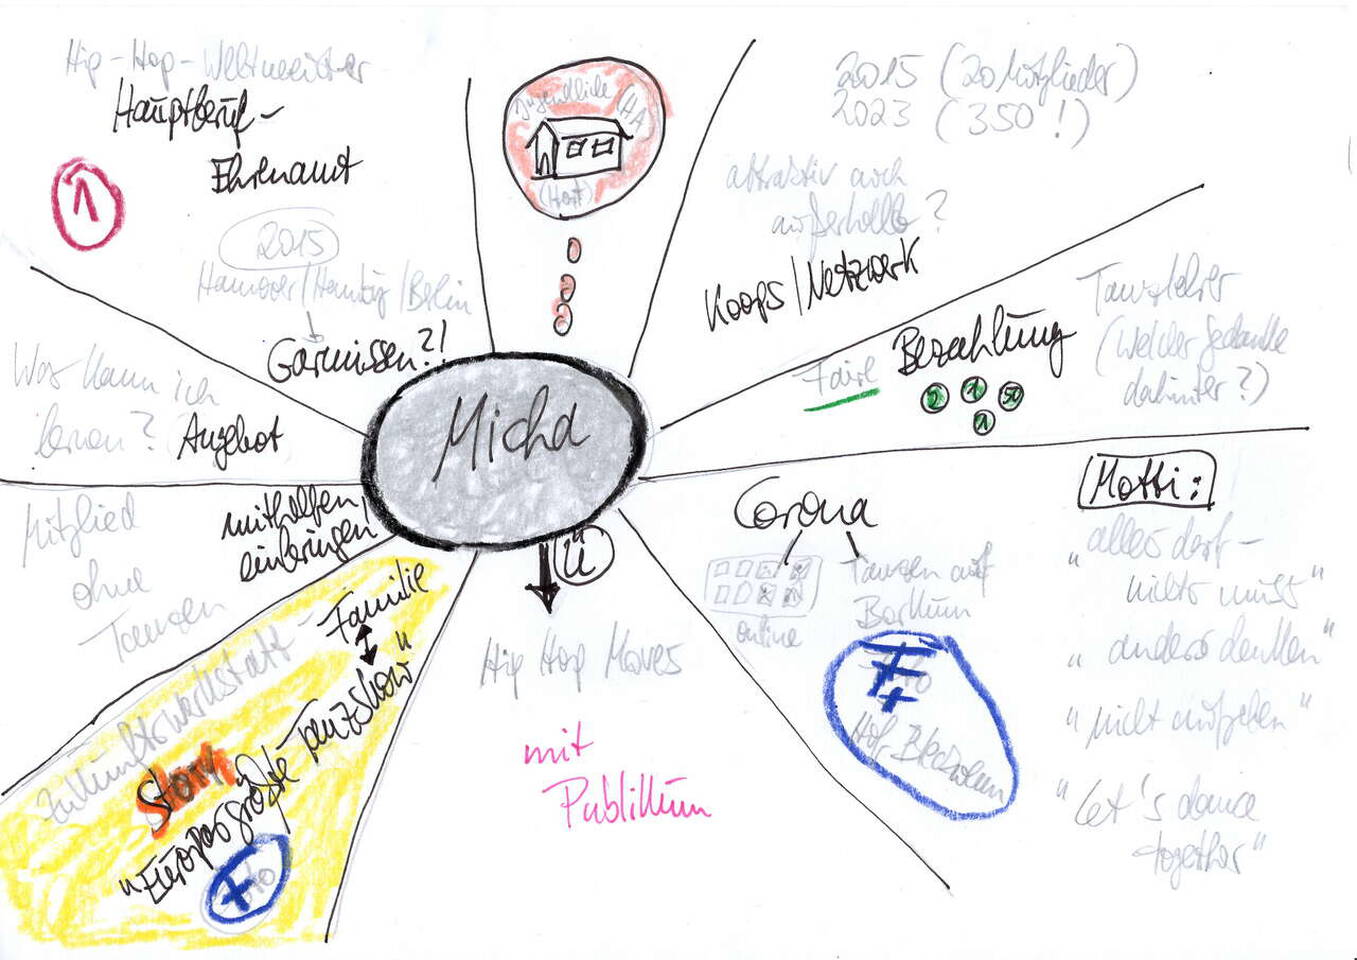 Hip-Hop-Weltmeister
Hauptberuf-
Ehrenamt
1
2015
Hannover/Hamburg/Berlin
Garmissen?!
Jugendliche (HA)
(Hort)
2015 (20 Mitglieder)
2023 (350!)
attraktiv auch
außerhalb?
Koops/Netzwerk
Tanzlehrer
(welcher Gedanke
dahinter?)
Faire Bezahlung
1 50
1
Micha
Was kann ich
lernen? Angebot
Mitglied
ohne
Tanzen
mithelfen
einbringen
Zukunftswerkstatt-
Familie
Story
"Europas größte Tanzshow"
Foto
Ü
Hip Hop Moves
mit
Publikum
Corona
online
Tanzen auf
Borkum
Foto
+
Hof
Motti:
"alles darf-
nichts muss"
"anders denken"
"nicht aufgeben"
"Let's dance
together"